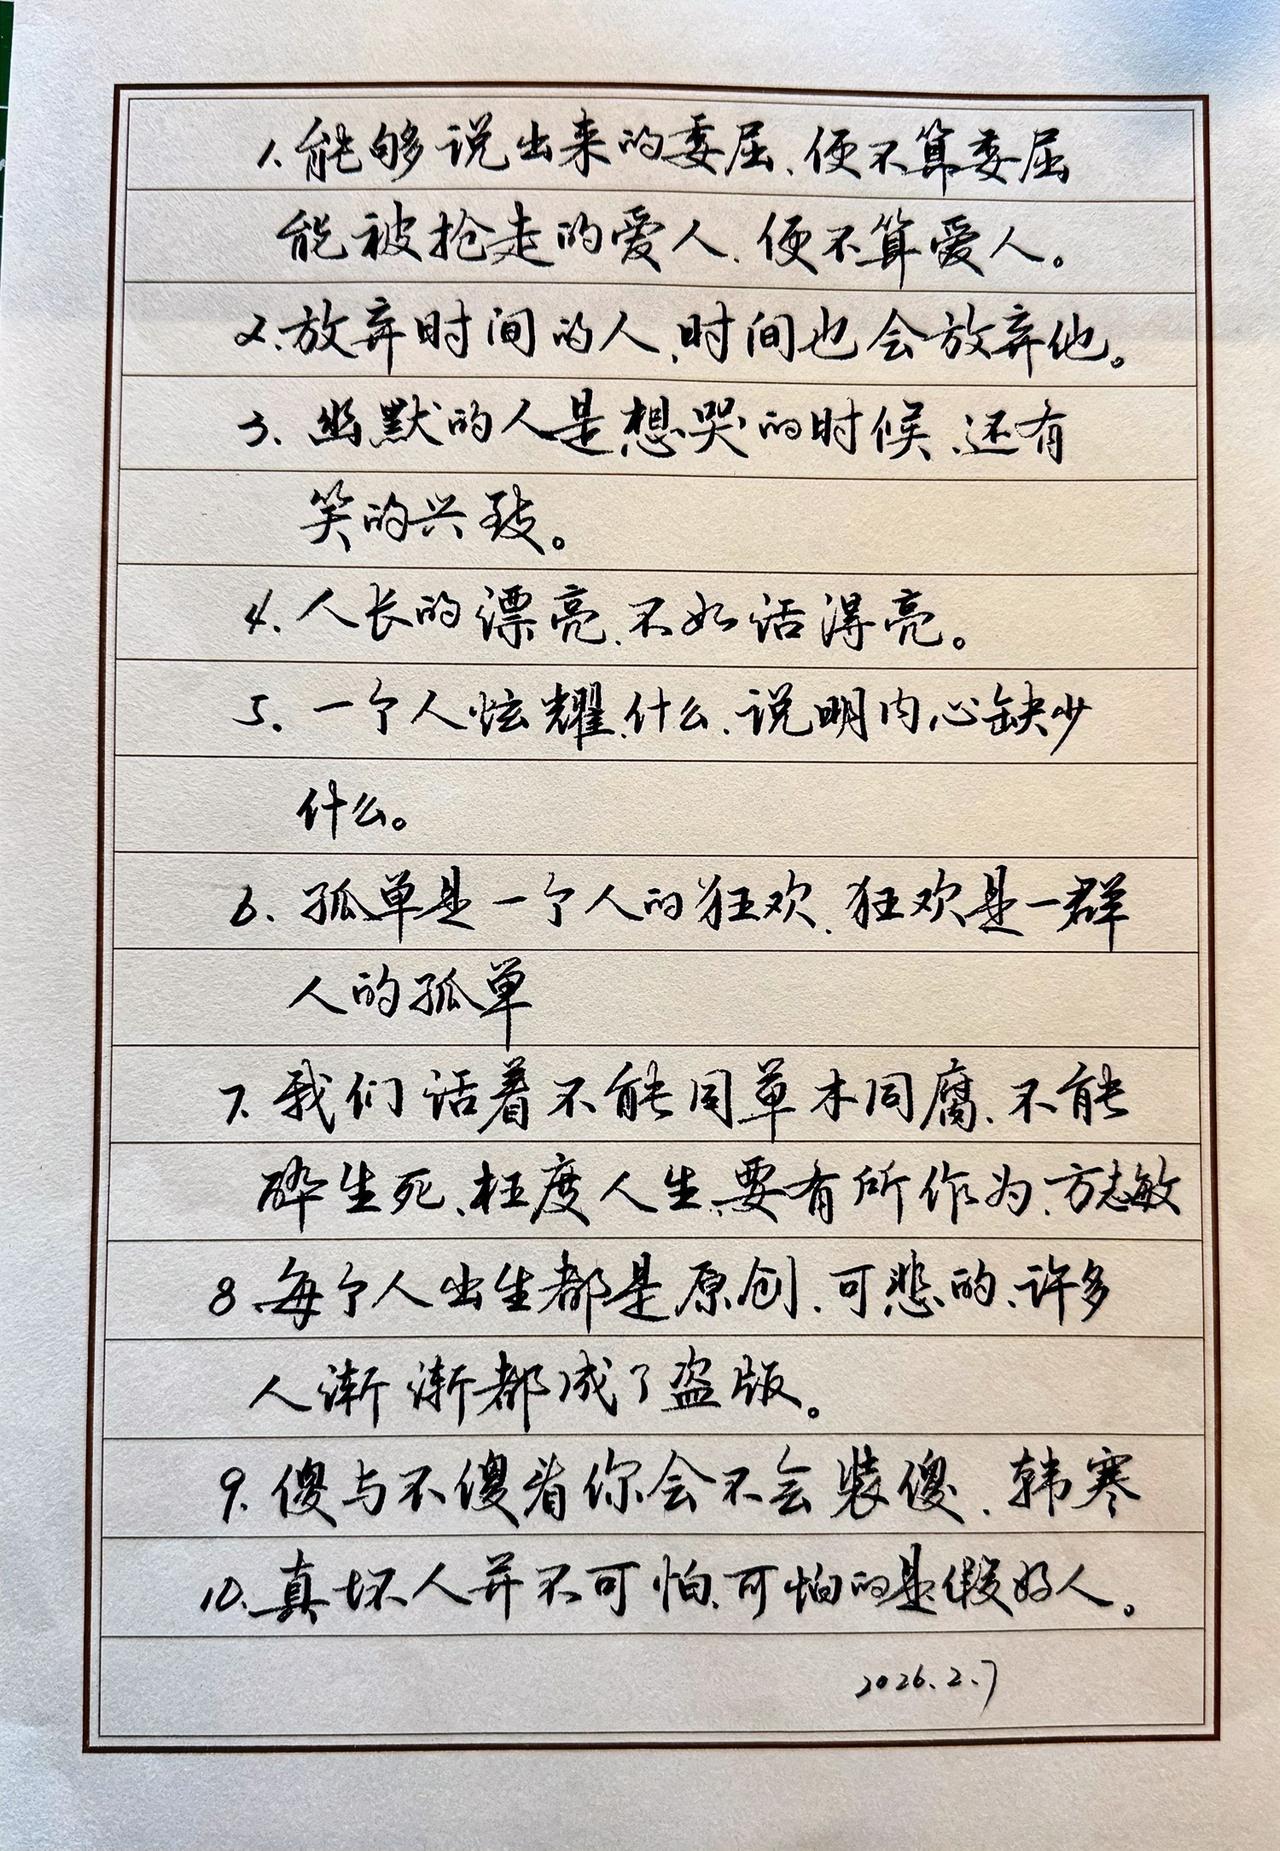 1.能够说出来的委屈、便不算委屈
能被抢走的爱人、便不算爱人。
2.放弃时间的人、时间也会放弃他。
3.幽默的人是想哭的时候、还有
笑的兴致。
4.人长的漂亮、不如话得亮。
5.一个人炫耀什么、说明内心缺少
什么。
6.孤单是一个人的狂欢、狂欢是一群
人的孤单
7.我们活着不能同草木同腐、不能
醉生死、枉度人生、要有所作为、方志敏
8.每个人出生都是原创、可悲的、许多
人渐渐都成了盗版。
9.傻与不傻看你会不会装傻、韩寒
10.真坏人并不可怕、可怕的是假好人。
2026.2.7